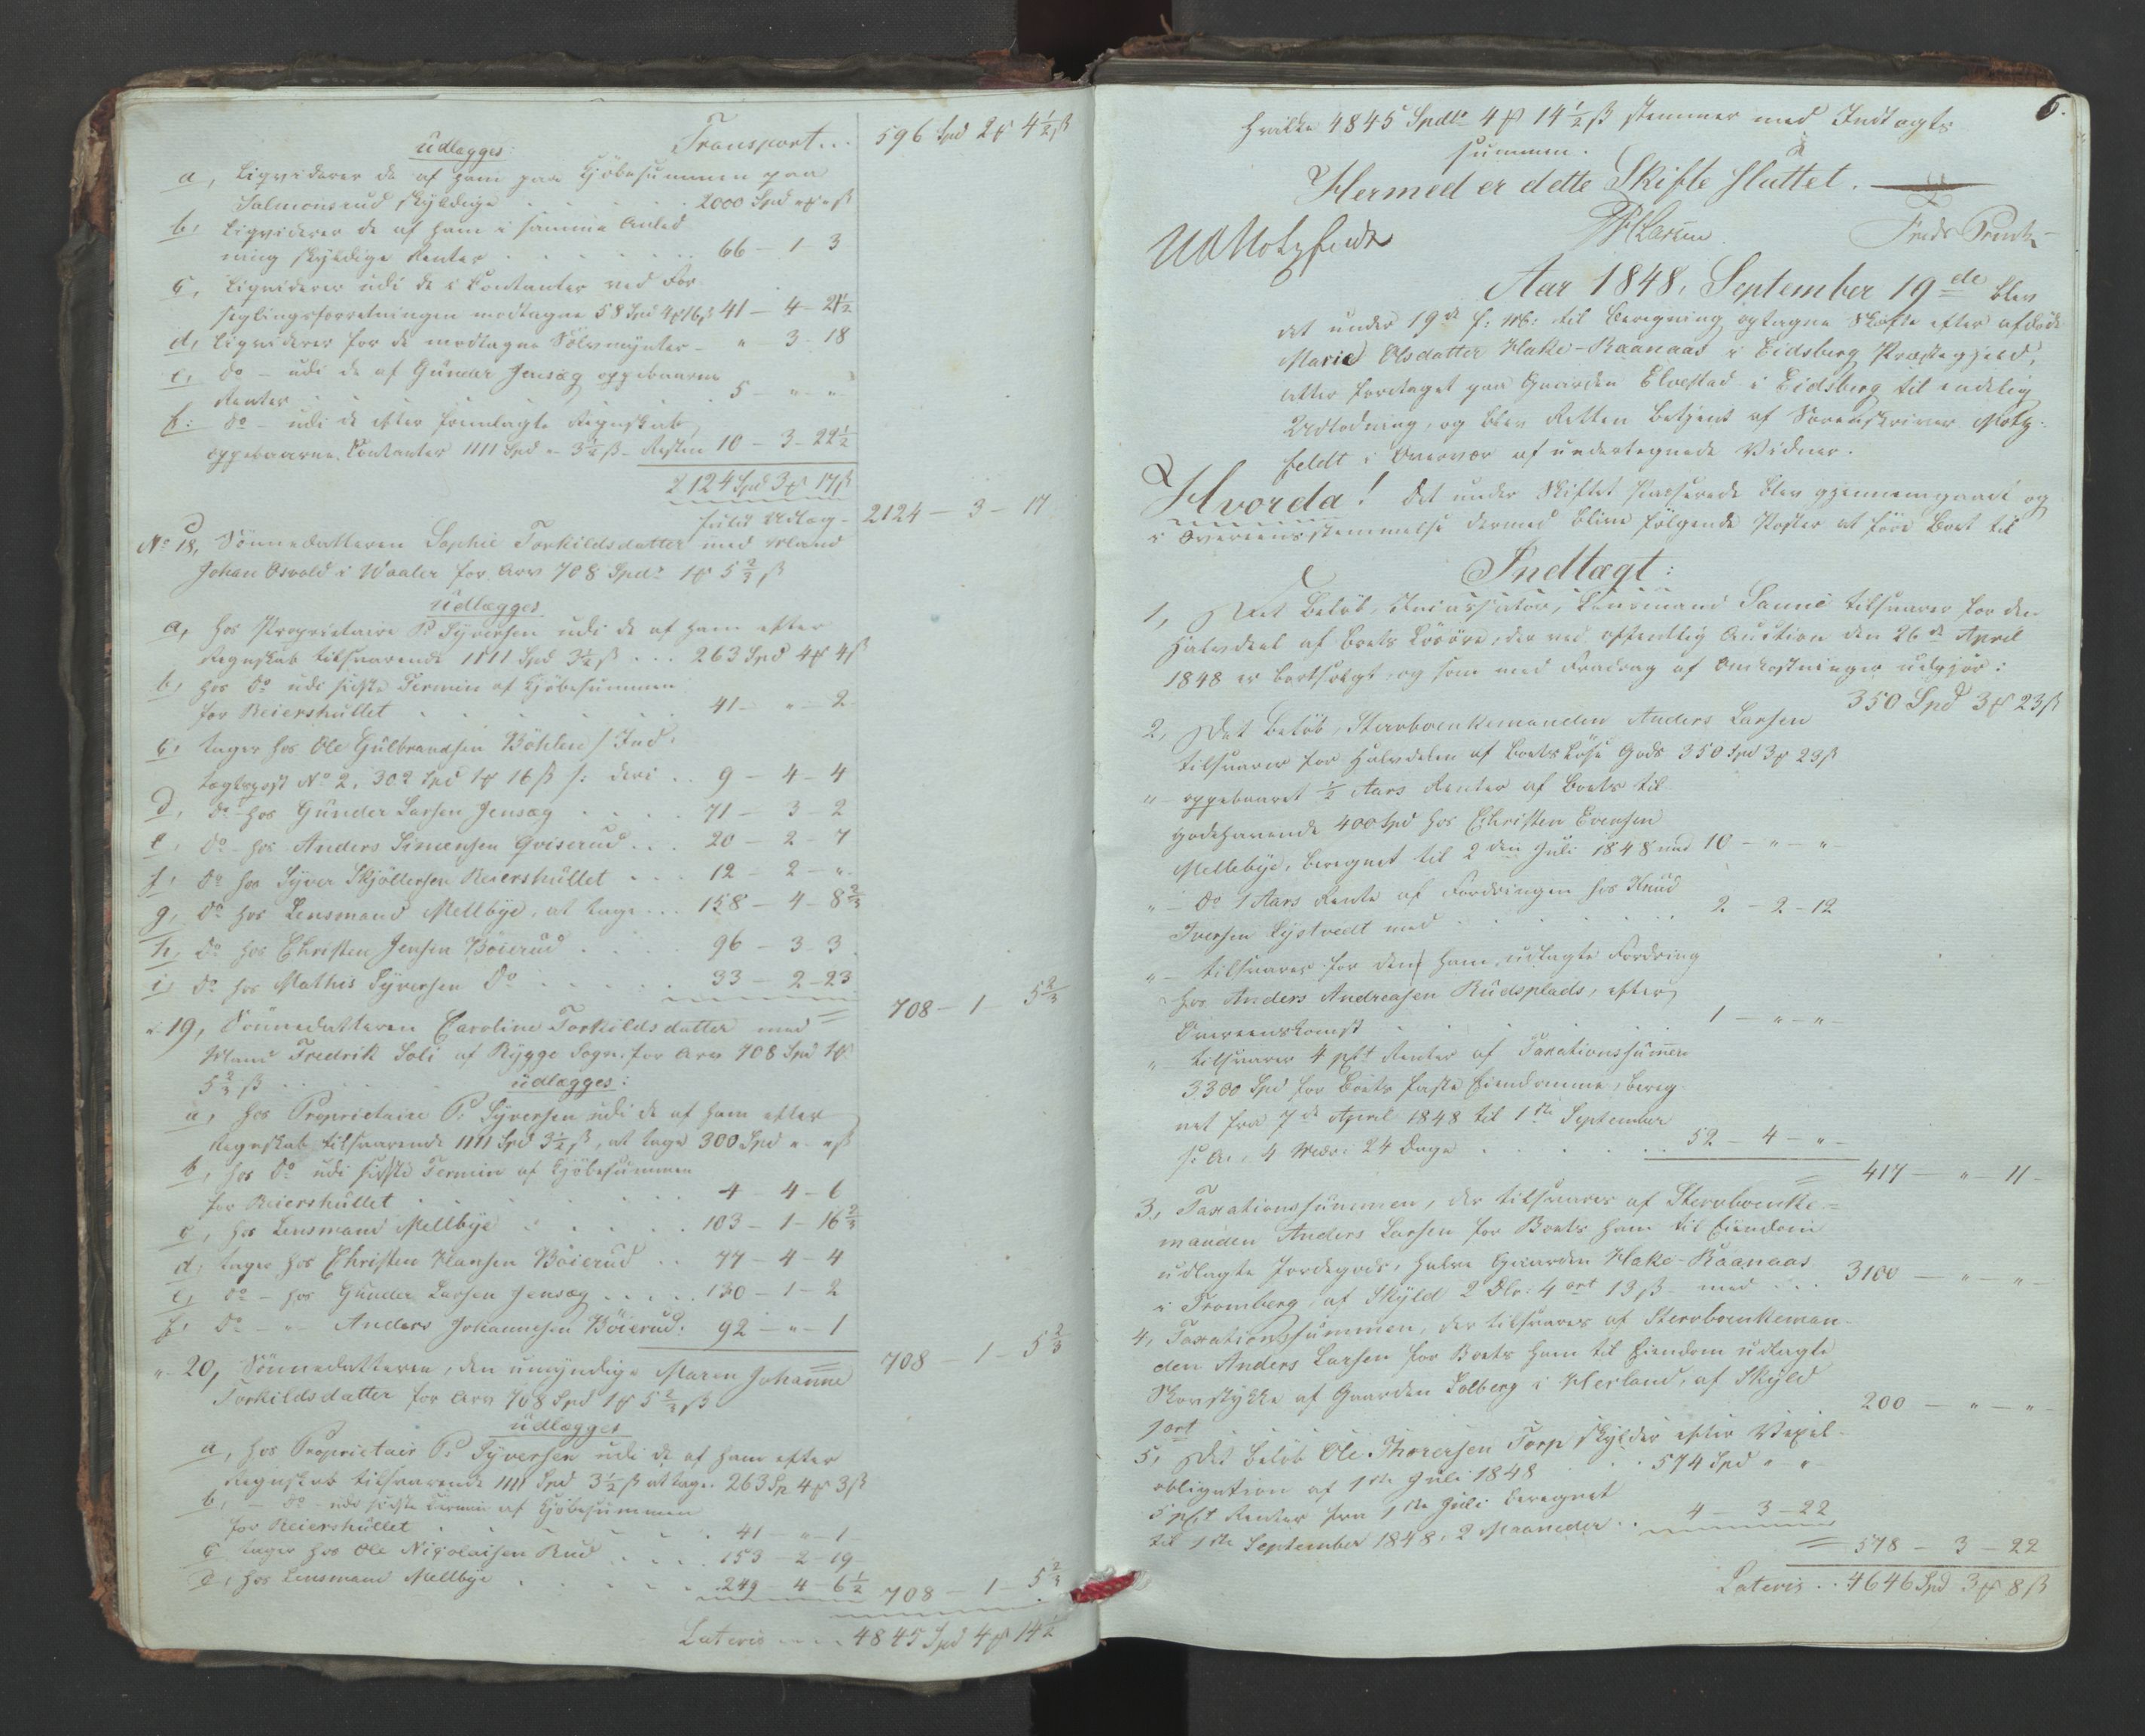 Transport... 596 Spd 2 ℔ 4½ ß
Udlægges:
a, Liqviderer de af ham paa Kjöbesummen paa
Salmonsrud skyldige . . . 2000 Spd " ℔ " ß
b, Liqviderer de af ham i samme Anled
ning skyldige Renter . . . 66 – 1 – 3
c, Liqviderer udi de i Contanter ved For
seglingsforretningen modtagne 58 Spd 4 ℔ 16 ß 41 – 4 – 21½
d, Liqviderer for de modtagne Sölvmynter – " – 3 – 18
e, Do – udi de af Gunder Jensæg oppebaarne
Renter . . . 5 – " – "
f: Do – udi de efter fremlagte Regnskab
oppebaarne Contanter 1111 Spd " 3½ ß – Resten 10 – 3 – 22½
2124 Spd 3 ℔ 17 ß
fuldt Udlæg – 2124 – 3 – 17
No 18, Sönnedatteren Sophie Torkildsdatter med Mand
Johan Osvold i Waaler for Arv 708 Spdr 1 ℔ 5⅔ ß
Udlægges
a, hos Proprietaire P. Syversen udi de af ham efter
Regnskab tilsvarende 1111 Spd 3½ ß . . . 263 Spd 4 ℔ 4 ß
b, hos Do udi sidste Termin af Kjöbesummen
for Beiershullet . . . 41 – " – 2
c, tager hos Ole Gulbrandsen Böhlen /: Ind-
tægtspost No 2, 302 Spd 1 ℔ 16 ß :/ deri . . 9 – 4 – 4
d, Do hos Gunder Larsen Jensæg . . . 71 – 3 – 2
e, Do – hos Anders Simensen Qviserud . . . 20 – 2 – 7
f, Do hos Syver Skjöllersen Beiershullet . . . 12 – 2 – "
g, Do hos Lensmand Mellbye, at tage . . . 158 – 4 – 8⅔
h, Do hos Christen Jensen Böierud . . . 96 – 3 – 3
i, Do hos Mathis Syversen Do . . . 33 – 2 – 23
708 – 1 – 5⅔
" 19, Sönnedatteren Caroline Torkildsdatter med
Mand Fredrik Soli af Rygge Sogn, for Arv 708 Spd 1 ℔
5⅔ ß . . . udlægges:
a, hos Proprietaire P. Syversen udi de af ham efter
Regnskab tilsvarende 1111 Spd 3½ ß, at tage 300 Spd " – " ß
b, hos Do udi sidste Termin af Kjöbesummen
for Beiershullet . . . 4 – 4 – 6
c, hos Lensmand Mellbye . . . 103 – 1 – 16⅔
d, tager hos Christen Hansen Böierud . . 77 – 4 – 4
e, Do – hos Gunder Larsen Jensæg . . . 130 – 1 – 2
f, Do – " – Anders Johannesen Böierud. 92 – " – 1
708 – 1 – 5⅔
" 20, Sönnedatteren, den umyndige Maren Johanne
Torkildsdatter for Arv 708 Spd 1 ℔ 5⅔ ß
udlægges
a, hos Proprietair P. Syversen udi de af ham efter
Regnskab tilsvarende 1111 Spd 3½ ß at tage 263 Sp 4 ℔ 3 ß
b, – Do – udi sidste Termin af Kjöbesummen
for Beiershullet . . . 41 – " – 1
c tager hos Ole Nicolaisen Rud . . . 153 – 2 – 19
d, hos Lensmand Mellbye . . . 249 – 4 – 6½ 708 – 1 – 5⅔
Lateris . . . 4845 Spd 4 ℔ 14½
6.
Hvilke 4845 Spdlr 4 ℔ 14½ ß stemmer med Indtægts
summen.
Hermed er dette Skifte sluttet.
Motzfeldt Larsen Fredr Prentz
Aar 1848, September 19de blev
det under 19de f: M: til Beregning optagne Skifte efter afdöde
Marie Olsdatter Hake-Raanaas i Eidsberg Præstegjeld,
atter foretaget paa Gaarden Elvestad i Eidsberg til endelig
Udlodning, og blev Retten betjent af Sorenskriver Motz-
feldt i Overvær af undertegnede Vidner.
Hvorda! det under Skiftet Passerede blev gjennemgaaet og
i Overeensstemmelse dermed blive fölgende Poster at före Boet til
Indtægt:
1, Det Belöb, Incassator, Lensmand Sanne tilsvarer for den
Halvdeel af Boets Lösöre, der ved offentlig Auction den 26de April
1848 er bortsolgt, og som med Fradrag af Omkostninger udgjör:
350 Spd 3 ℔ 23 ß
2, Det Belöb, Stervboenkemanden Anders Larsen
tilsvarer for Halvdelen af Boets Löse Gods 350 Spd 3 ℔ 23 ß
" – oppebaaret ½ Aars Renter af Boets til-
godehavende 400 Spd hos Christen Evensen
Mellebye, beregnet til 2den Juli 1848 med 10 – " – "
" – Do 1 Aars Rente af Fordringen hos Knud
Iversen Lystvedt med . . . 2 – 2 – 12
" – tilsvarer for den ham udlagte Fordring
hos Anders Andreasen Rudsplads, efter
Overeenskomst . . . 1 – " – "
" – tilsvarer 4 pCt Renter af Taxationssummen
3300 Spd for Boets faste Eiendomme, bereg-
net fra 7de April 1848 til 1ste September
s: A:, 4 Mdr: 24 Dage . . . 52 – 4 – "
417 – " – 11
3, Taxationssummen, der tilsvares af Stervboenke-
manden Anders Larsen for Boets ham til Eiendom
udlagte Jordegods, halve Gaarden Hake-Raanaas
i Tromberg, af Skyld 2 Dlr: 4 ort 13 ß – med . . 3100 – " – "
4, Taxationssummen, der tilsvares af Stervboenkeman-
den Anders Larsen for Boets ham til Eiendom udlagte
Skovstykke af Gaarden Solberg i Herland, af Skyld
1 ort 200 – " – "
5, Det Belöb Ole Thoresen Torp skylder efter Vexel-
obligation af 1ste Juli 1848 . . 574 Spd " – "
5 pCt Renter fra 1ste Juli beregnet
til 1ste September 1848, 2 Maaneder . . 4 – 3 – 22
578 – 3 – 22
Lateris . . 4646 Spd 3 ℔ 8 ß